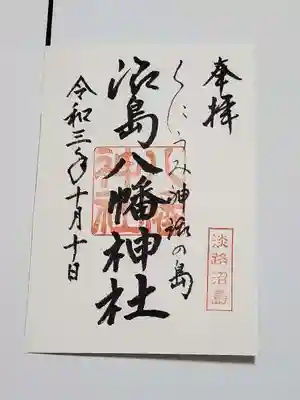 奉拝
くにうみ神話の島
沼島八幡神社
令和三年十月十日
淡路沼島
八幡
神社